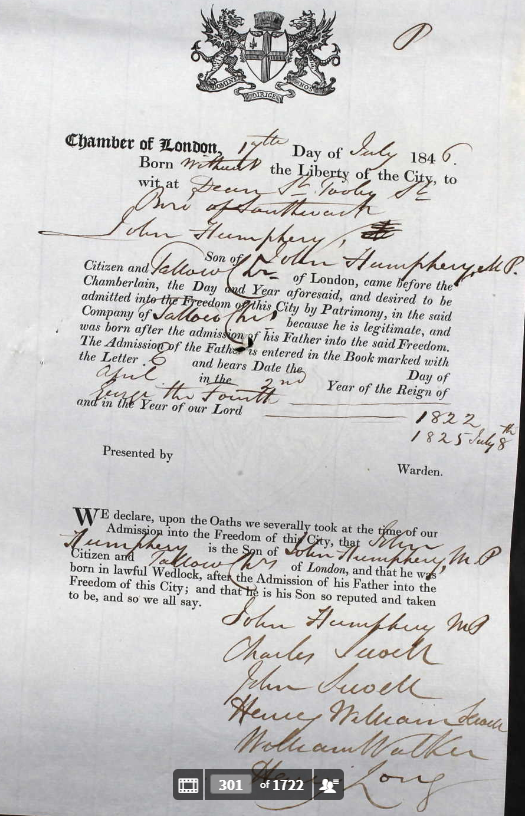 P
DOMINE DIRIGE NOS
Chamber of London, 17th Day of July 1846.
Born without the Liberty of the City, to
wit at Dean St. Tooley St
Boro' of Southwark
John Humphery,
Son of John Humphery, M.P.
Citizen and Tallow Chr of London, came before the
Chamberlain, the Day and Year aforesaid, and desired to be
admitted into the Freedom of this City by Patrimony, in the said
Company of Tallow Chrs because he is legitimate, and
was born after the admission of his Father into the said Freedom.
The Admission of the Father is entered in the Book marked with
the Letter and bears Date the Day of
April in the 2nd Year of the Reign of
George the Fourth
and in the Year of our Lord 1822
1825 July 8th
Presented by
Warden.
WE declare, upon the Oaths we severally took at the time of our
Admission into the Freedom of this City, that John
Humphery is the Son of John Humphery, M.P
Citizen and Tallow Chr of London, and that he was
born in lawful Wedlock, after the Admission of his Father into the
Freedom of this City; and that he is his Son so reputed and taken
to be, and so we all say.
John Humphery MP
Charles Sewell
John Sewell
Henry William Sewell
William Walker
Henry Long
301 of 1722